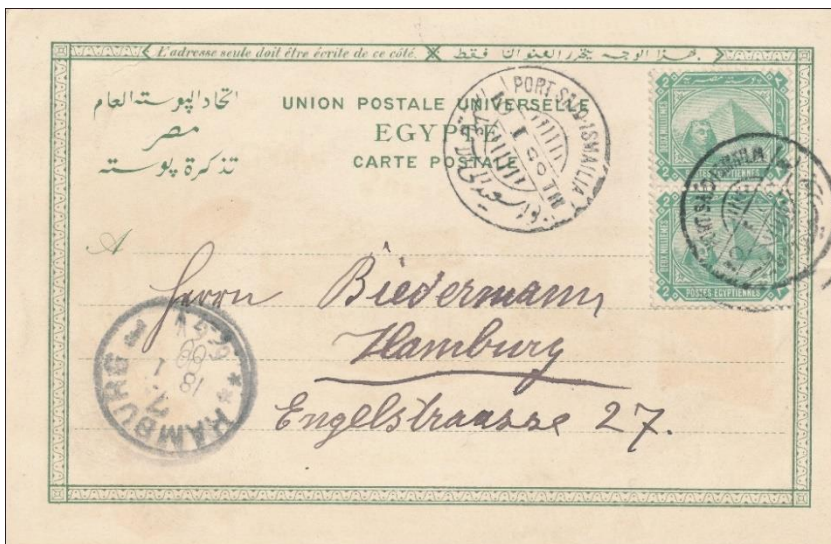 L'adresse seule doit être écrite de ce côté. بهذا الوجه يحرر العنوان فقط
اتحاد البوسته العام
مصر
تذكرة بوسته
UNION POSTALE UNIVERSELLE
EGYPTE
CARTE POSTALE
PORT SAID-ISMAILIA
2 2
POSTES EGYPTIENNES
2 2
POSTES EGYPTIENNES
A
Herrn Biedermann
Hamburg
Engelstraasse 27.
HAMBURG